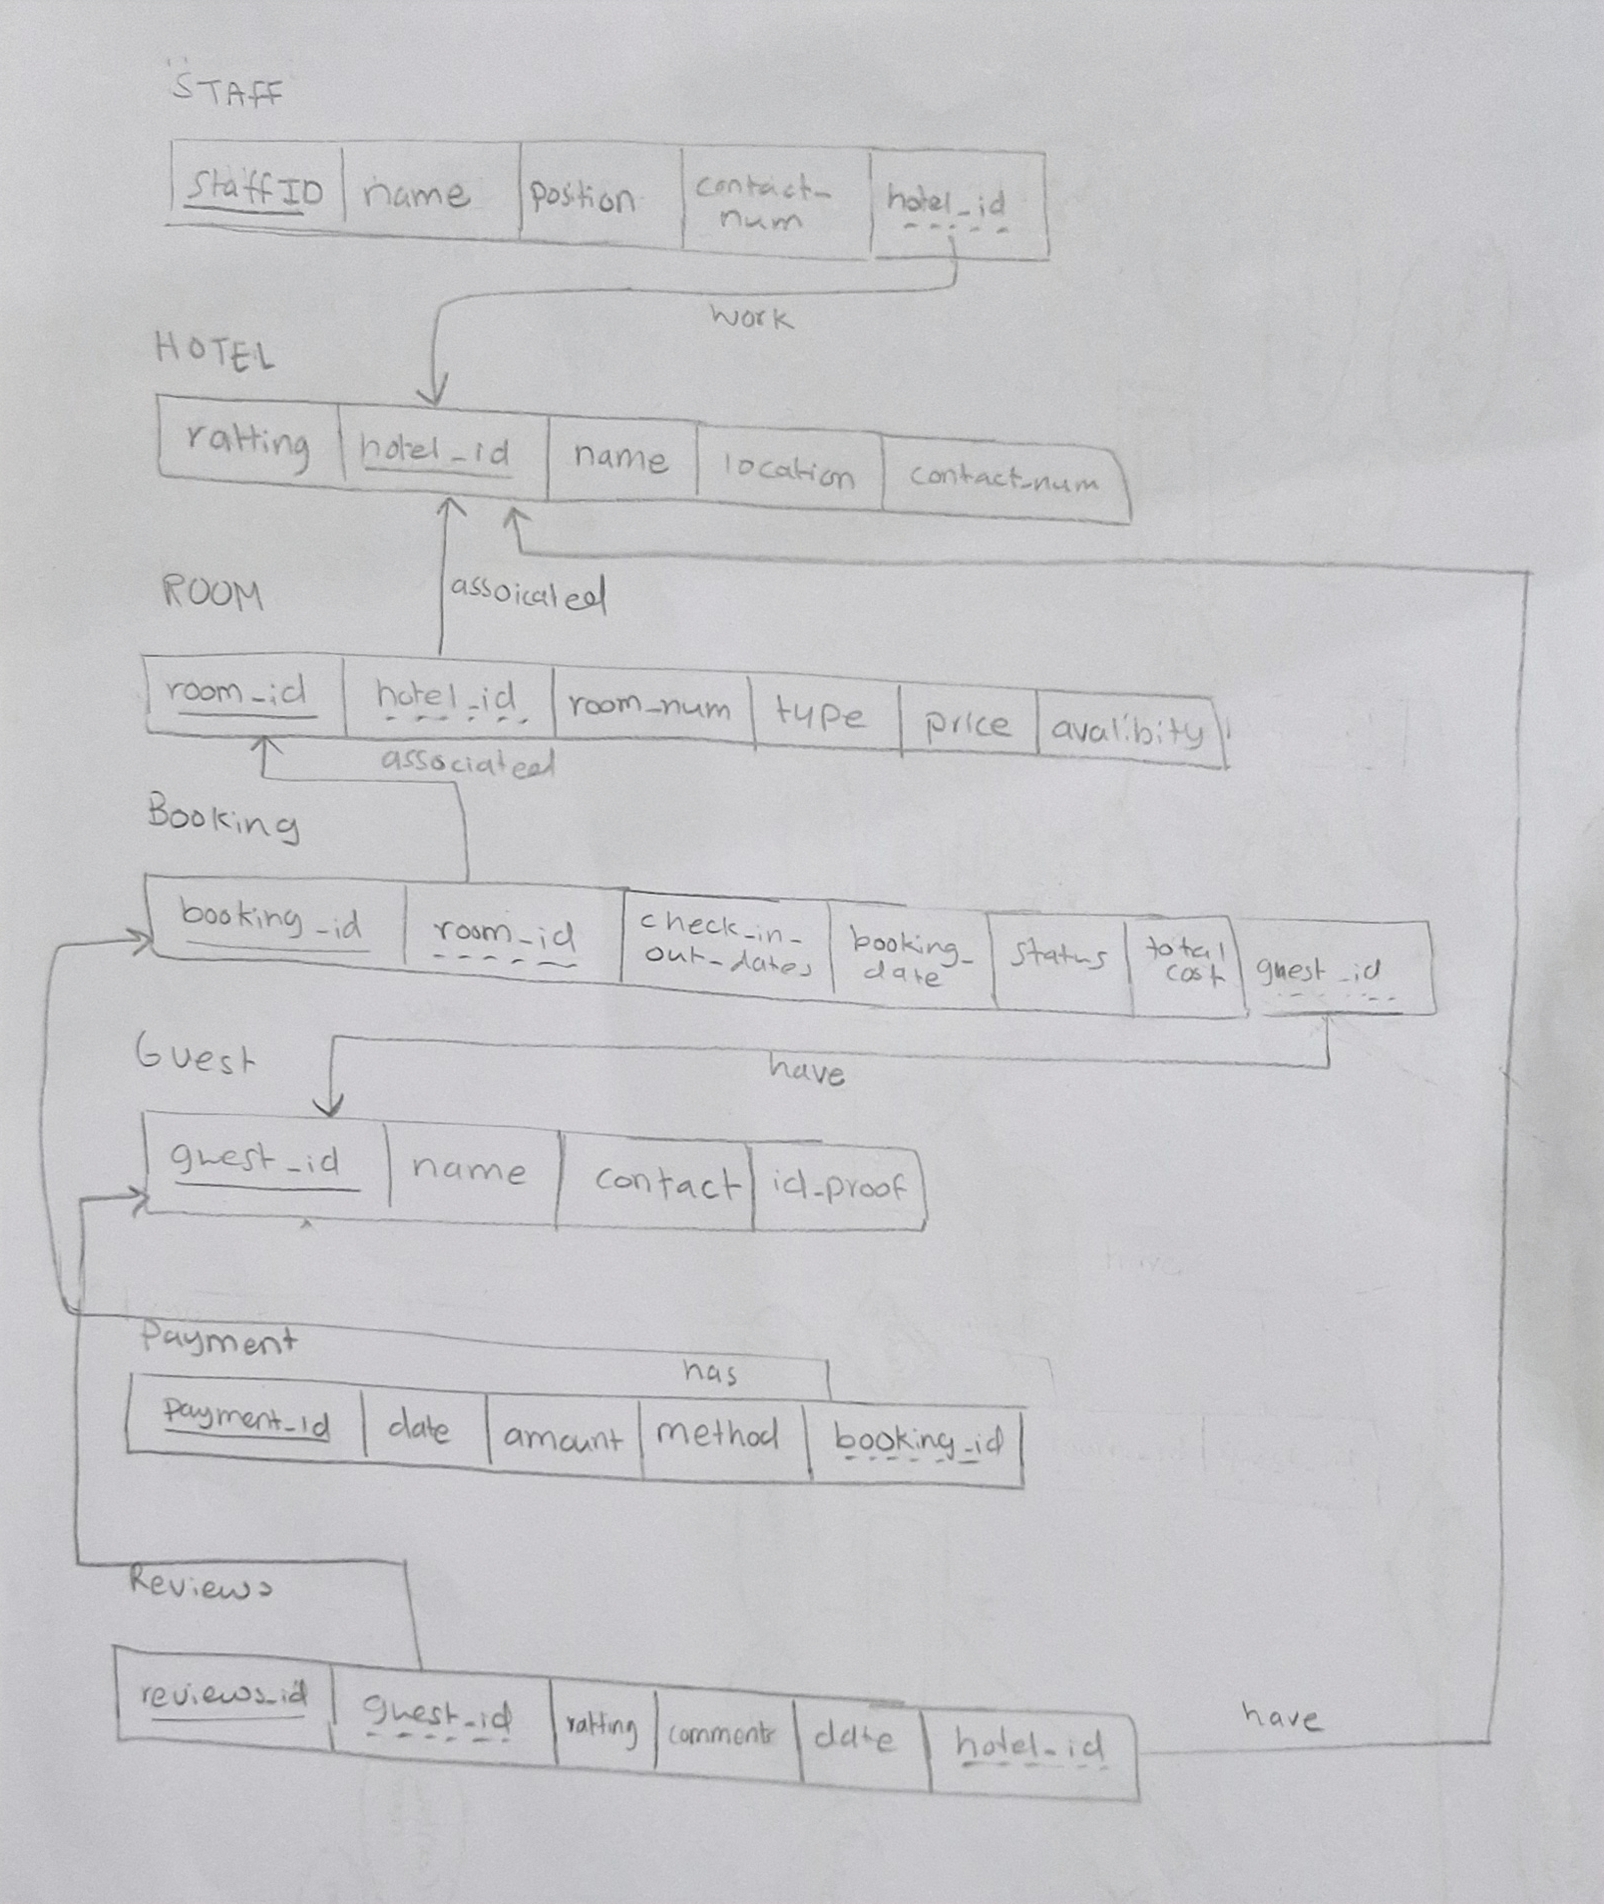 STAFF
StaffID name position contact_num hotel_id
work
HOTEL
ratting hotel_id name location contact_num
assoicated
ROOM
room_id hotel_id room_num type price avalibity
associated
Booking
booking_id room_id check_in_out_dates booking_date status total cost guest_id
have
Guest
guest_id name contact id_proof
Payment
has
payment_id date amount method booking_id
Reviews
reviews_id guest_id ratting comments date hotel_id
have